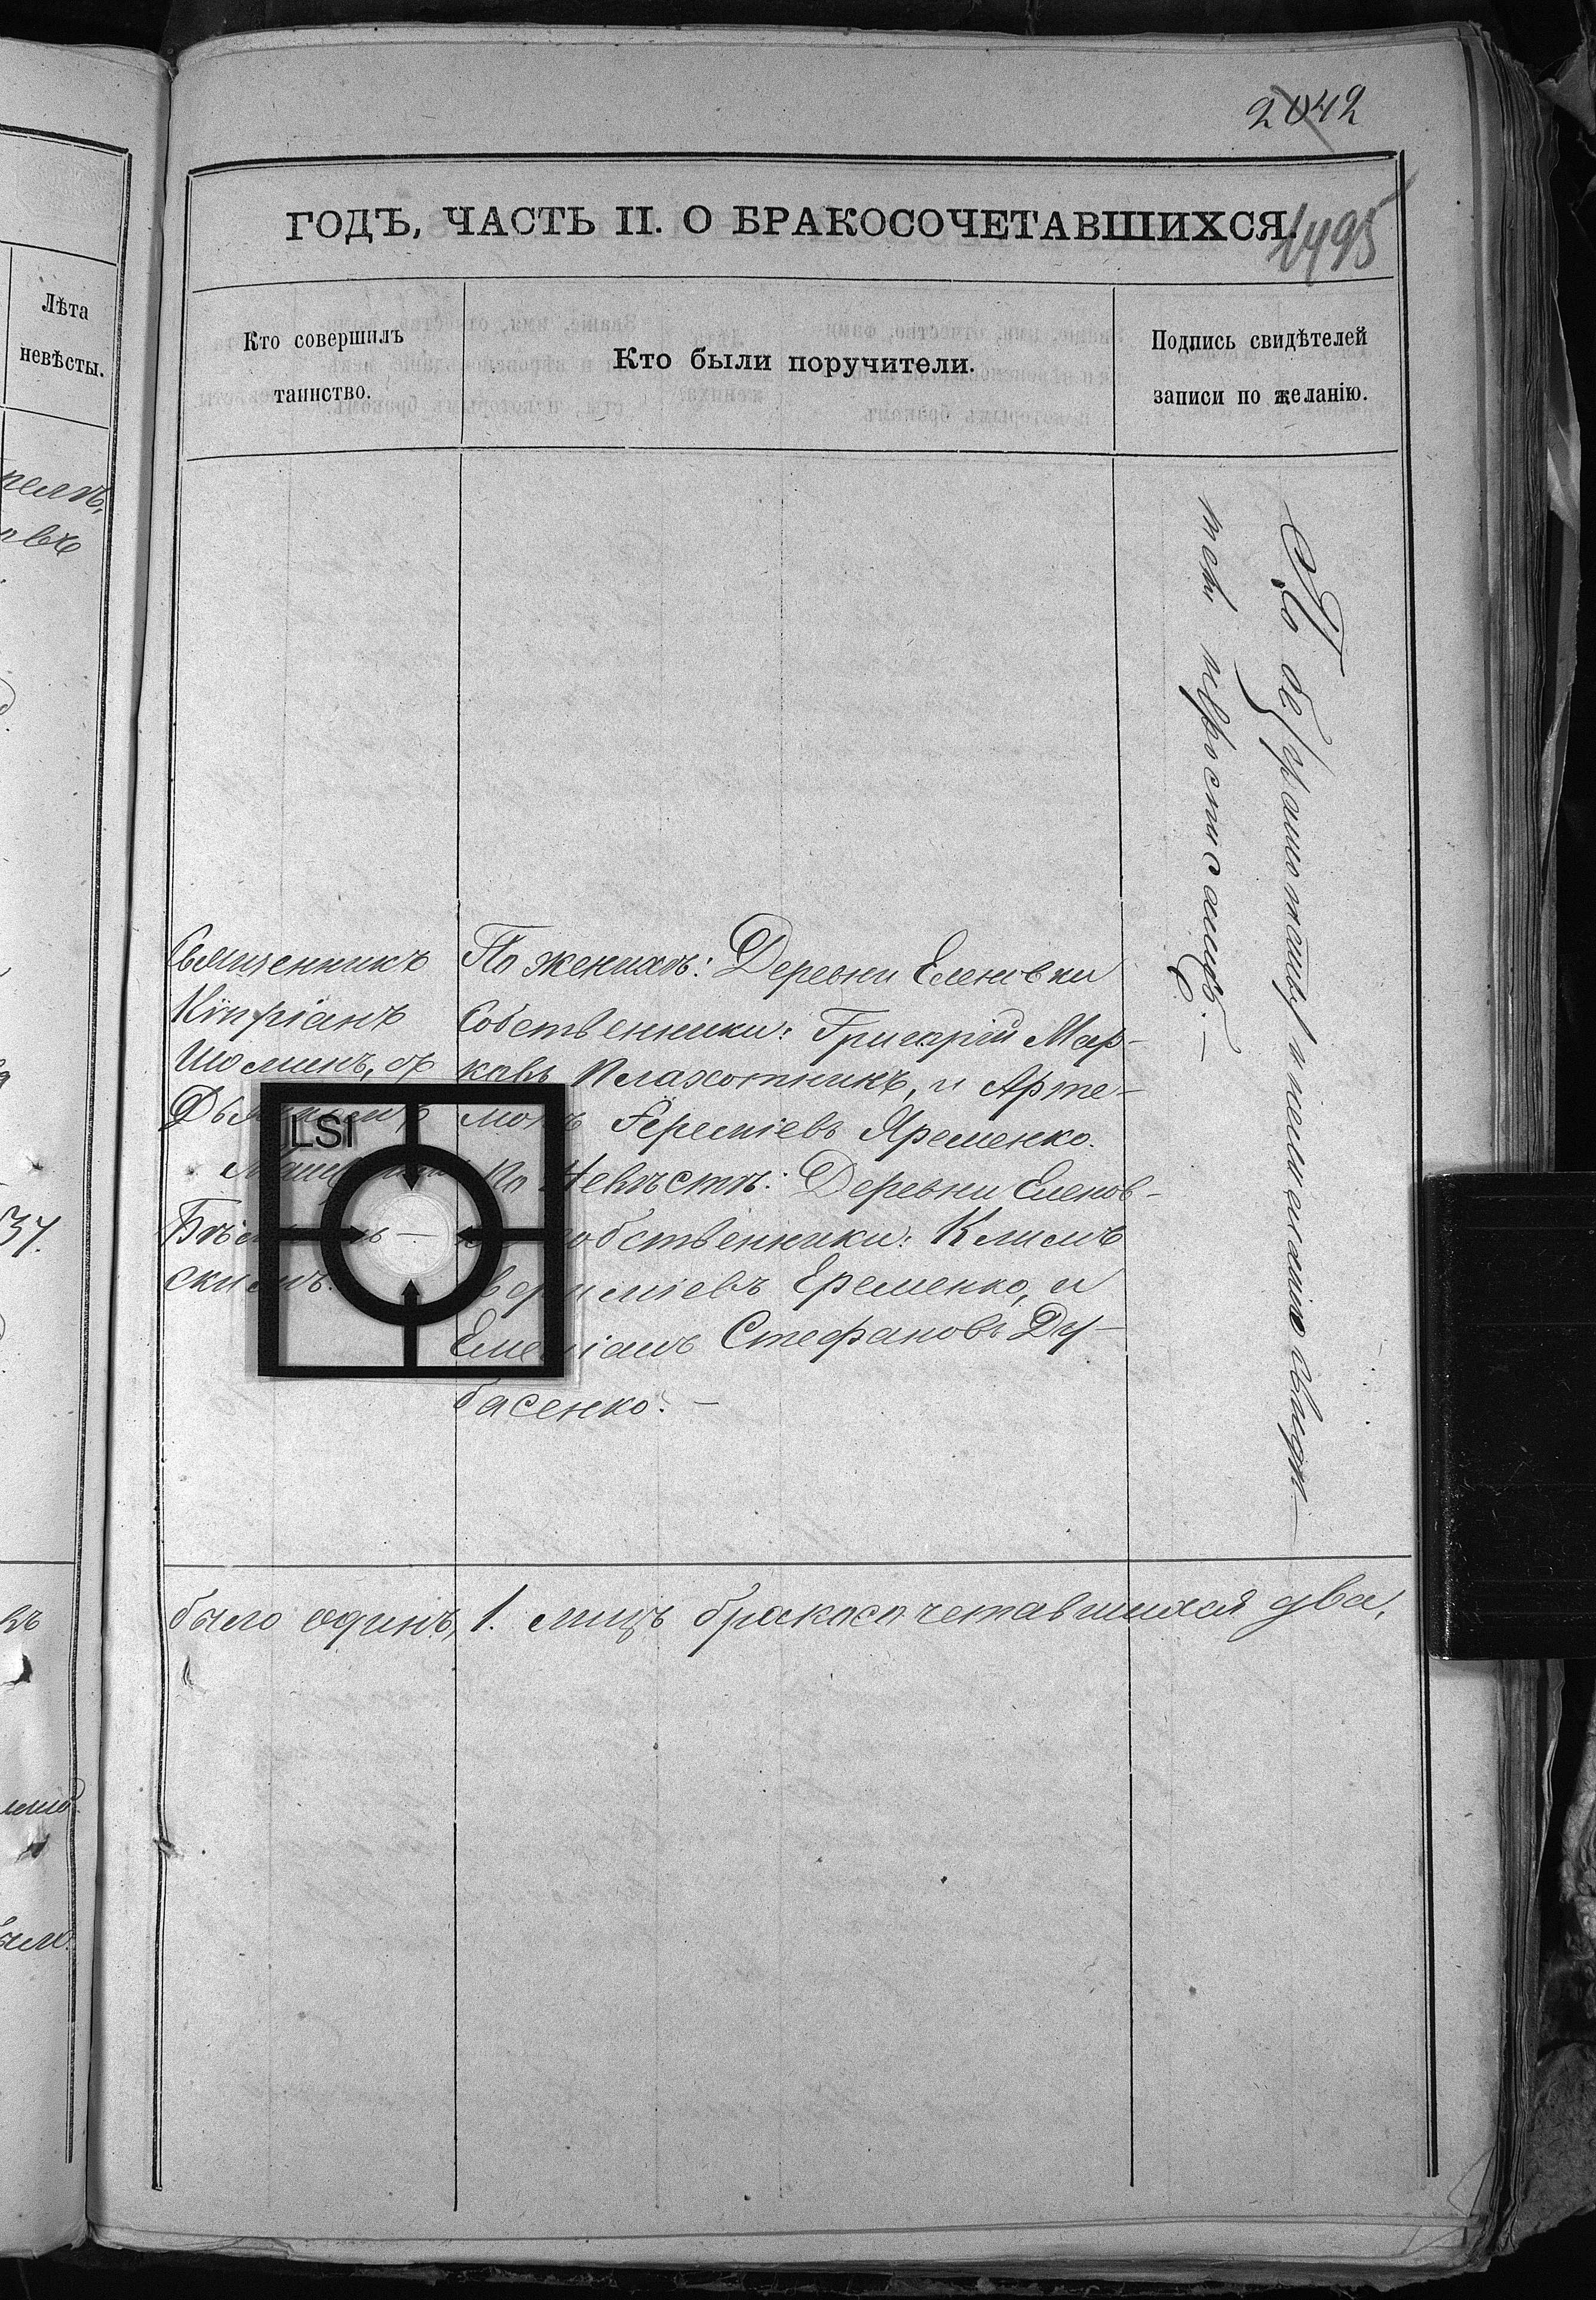 2042
ГОДЪ, ЧАСТЬ II. О БРАКОСОЧЕТАВШИХСЯ.
1495
Лѣта
невѣсты.
Кто совершилъ
таинство.
Кто были поручители.
Подпись свидѣтелей
записи по желанію.
Священникъ
Кипріанъ
Шоминъ, съ
Бѣ
скимъ.
По женихѣ: Деревни Еленовки
Собственники: Григорій Мар-
ковъ Плахотникъ, и Арте-
монъ Яременко.
По Невѣстѣ: Деревни Еленов-
собственники: Климъ
Еременко, и
Емеліанъ Стефановъ Ду-
басенко. –
По безграмотству и нежеланію свидѣ-
тели неподписались. –
было одинъ, 1. лицъ бракосочетавшихся два,
37.
LSI